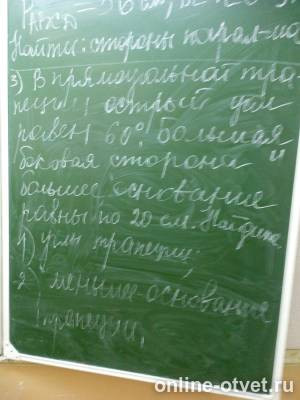 Найти: стороны парал-ма
3) В прямоугольной тра
пеции острый угол
равен 60°. Большая
боковая сторона и
большее основание
равны по 20 см. Найдите
1) углы трапеции;
2) меньшее основание
трапеции.
online-otvet.ru